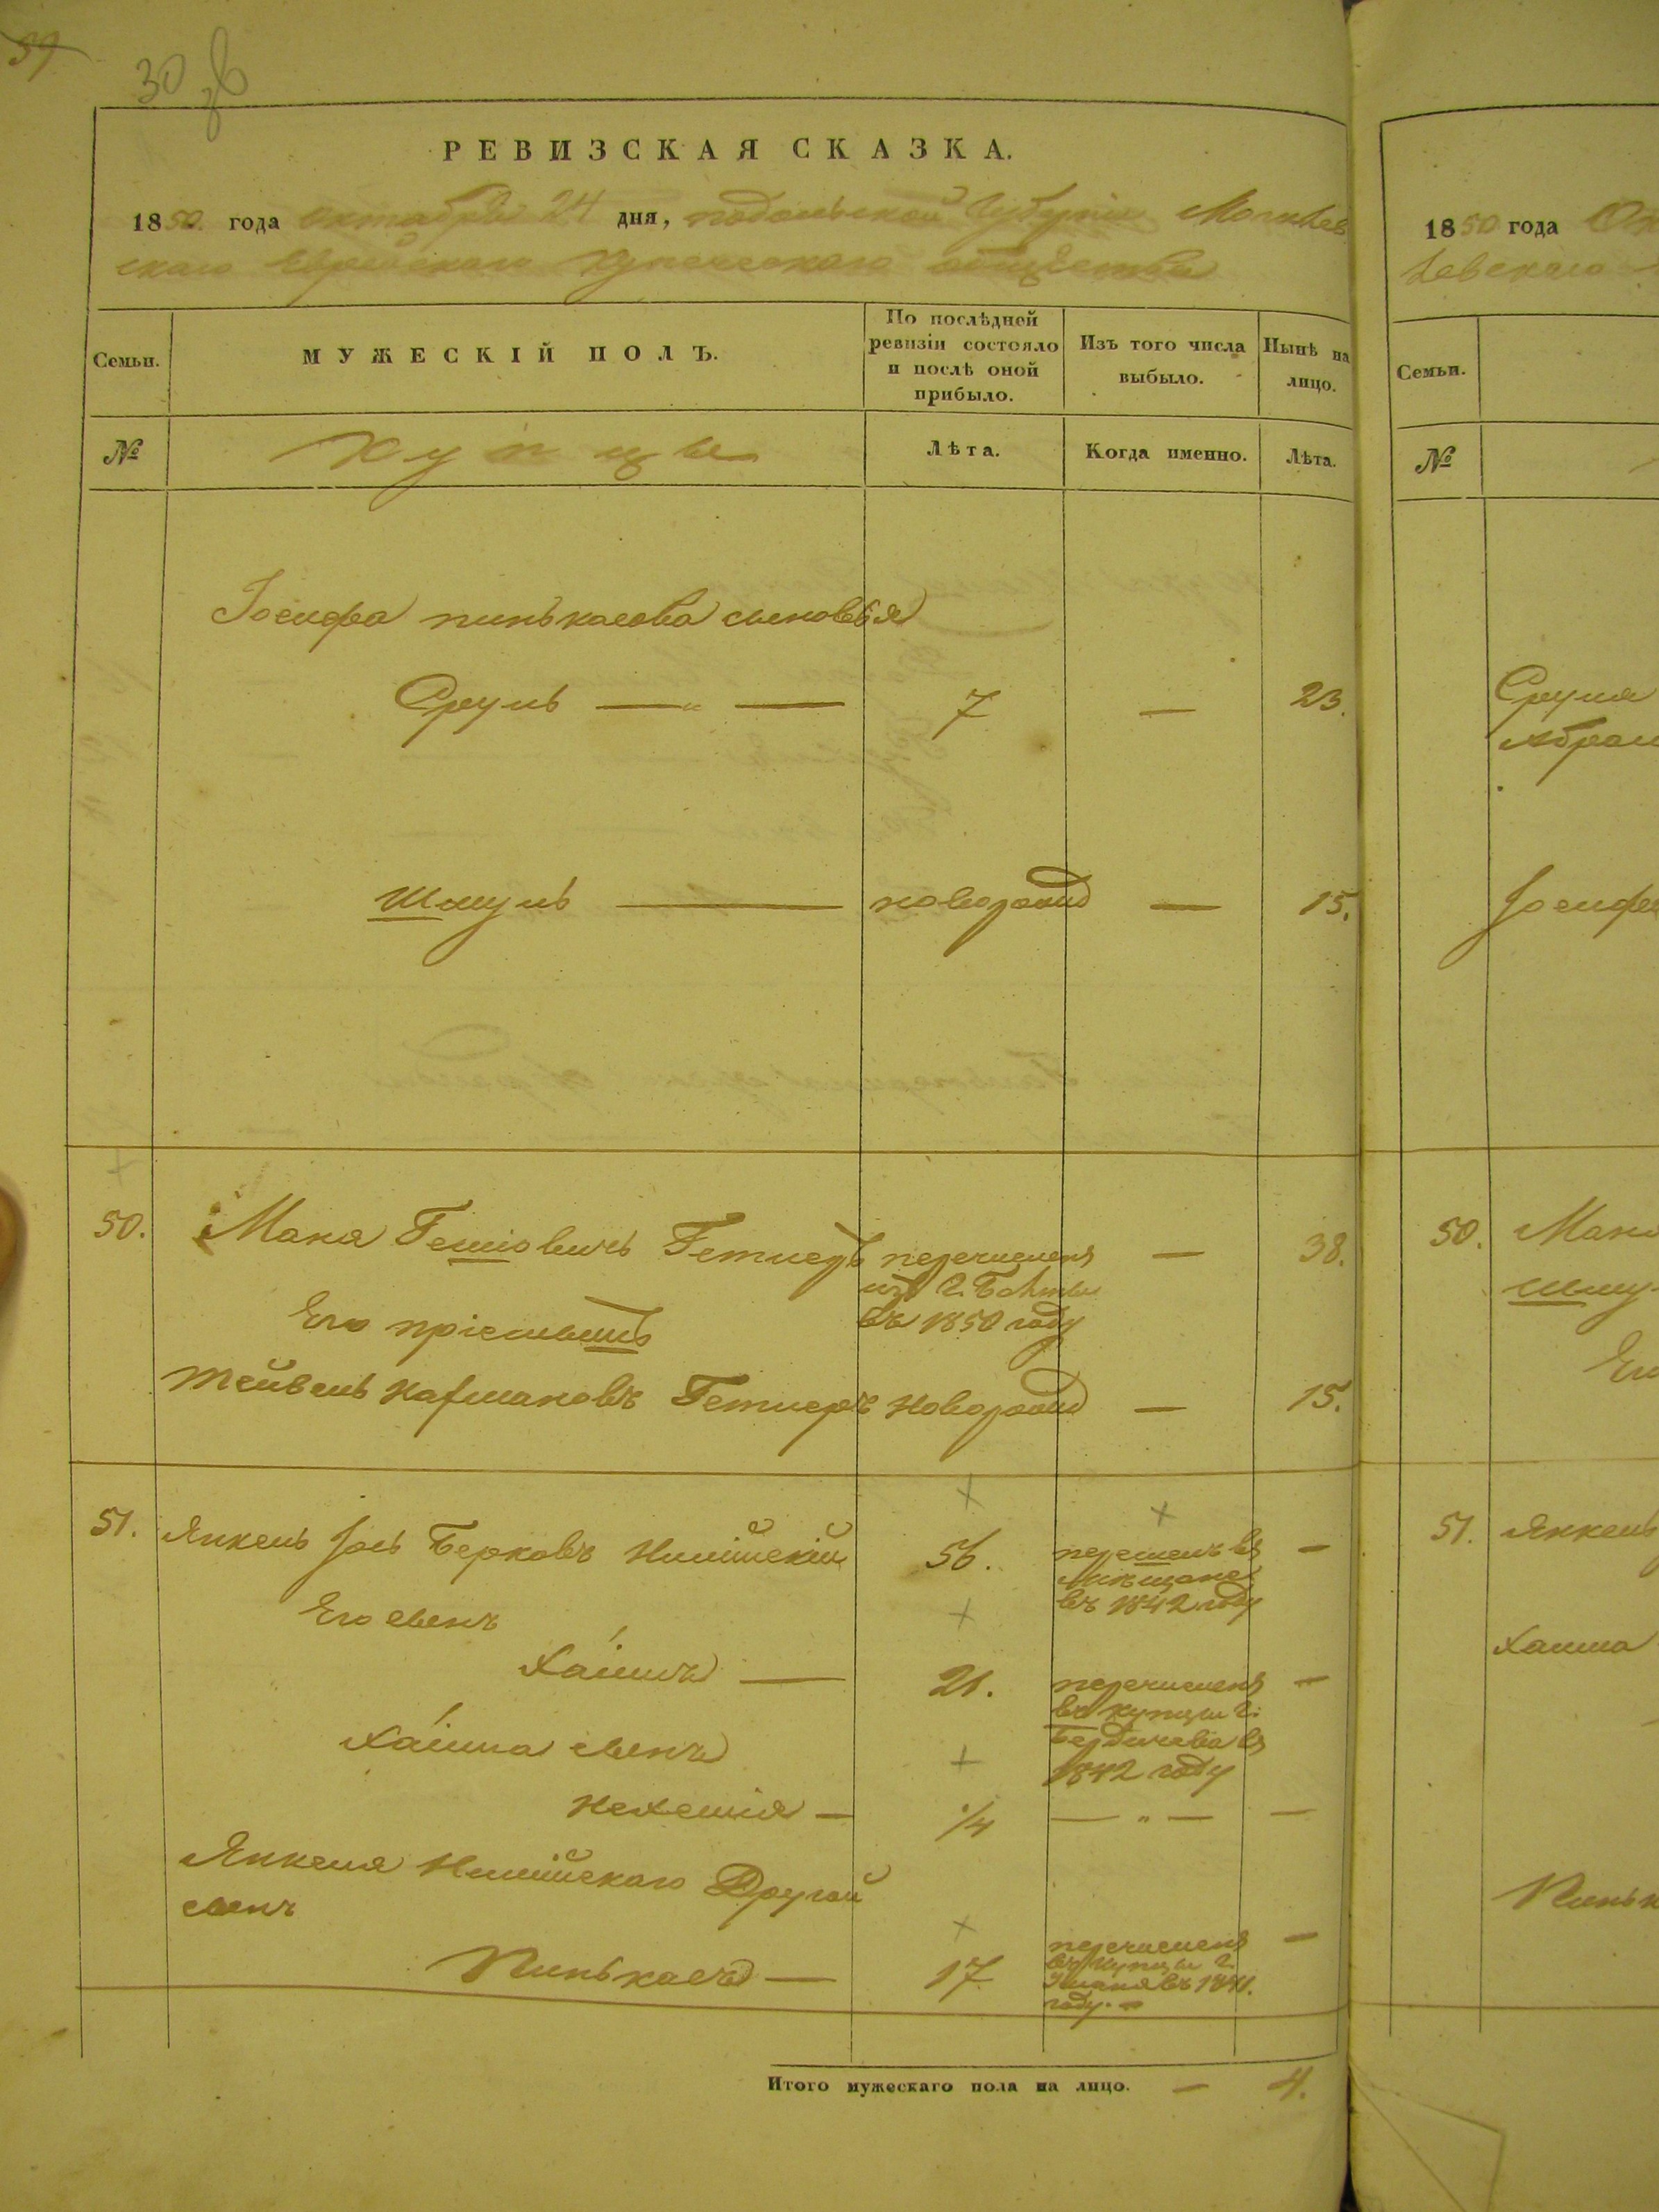 39
30 зв
РЕВИЗСКАЯ СКАЗКА.
1850 года октября 24 дня, подольской Губерніи Могилев
скаго Еврейскаго купеческаго общества
Семьи.
МУЖЕСКІЙ ПОЛЪ.
По послѣдней ревизіи состояло и послѣ оной прибыло.
Изъ того числа выбыло.
Нынѣ на лицо.
№
Купцы
Лѣта.
Когда именно.
Лѣта.
Іосифа пинькасова сыновья
Сруль — „ — 7 — 23.
Шмуль — новорожд — 15.
50. Мана Гетнеръ перечисленъ — 38.
изъ г. Балты
Его пріемышъ въ 1850 году
Тейвель Гетнеръ новорожд — 15.
51. Янкель Іось Берковъ 56. перешелъ въ —
мѣщане
въ 1842 году
Его сынъ
Хаимъ — 21. перечисленъ —
въ купцы г.
Бердичева въ
1842 году
Хаима сынъ
Нехемія — 1/4 — „ — —
Янкеля Другой
сынъ
Пинькасъ — 17 перечисленъ —
въ купцы г.
въ 1841.
году. —
Итого мужескаго пола на лицо. — 4.
1850 года
Семьи.
№
Сруля
50.
51. Янкель
Хаима